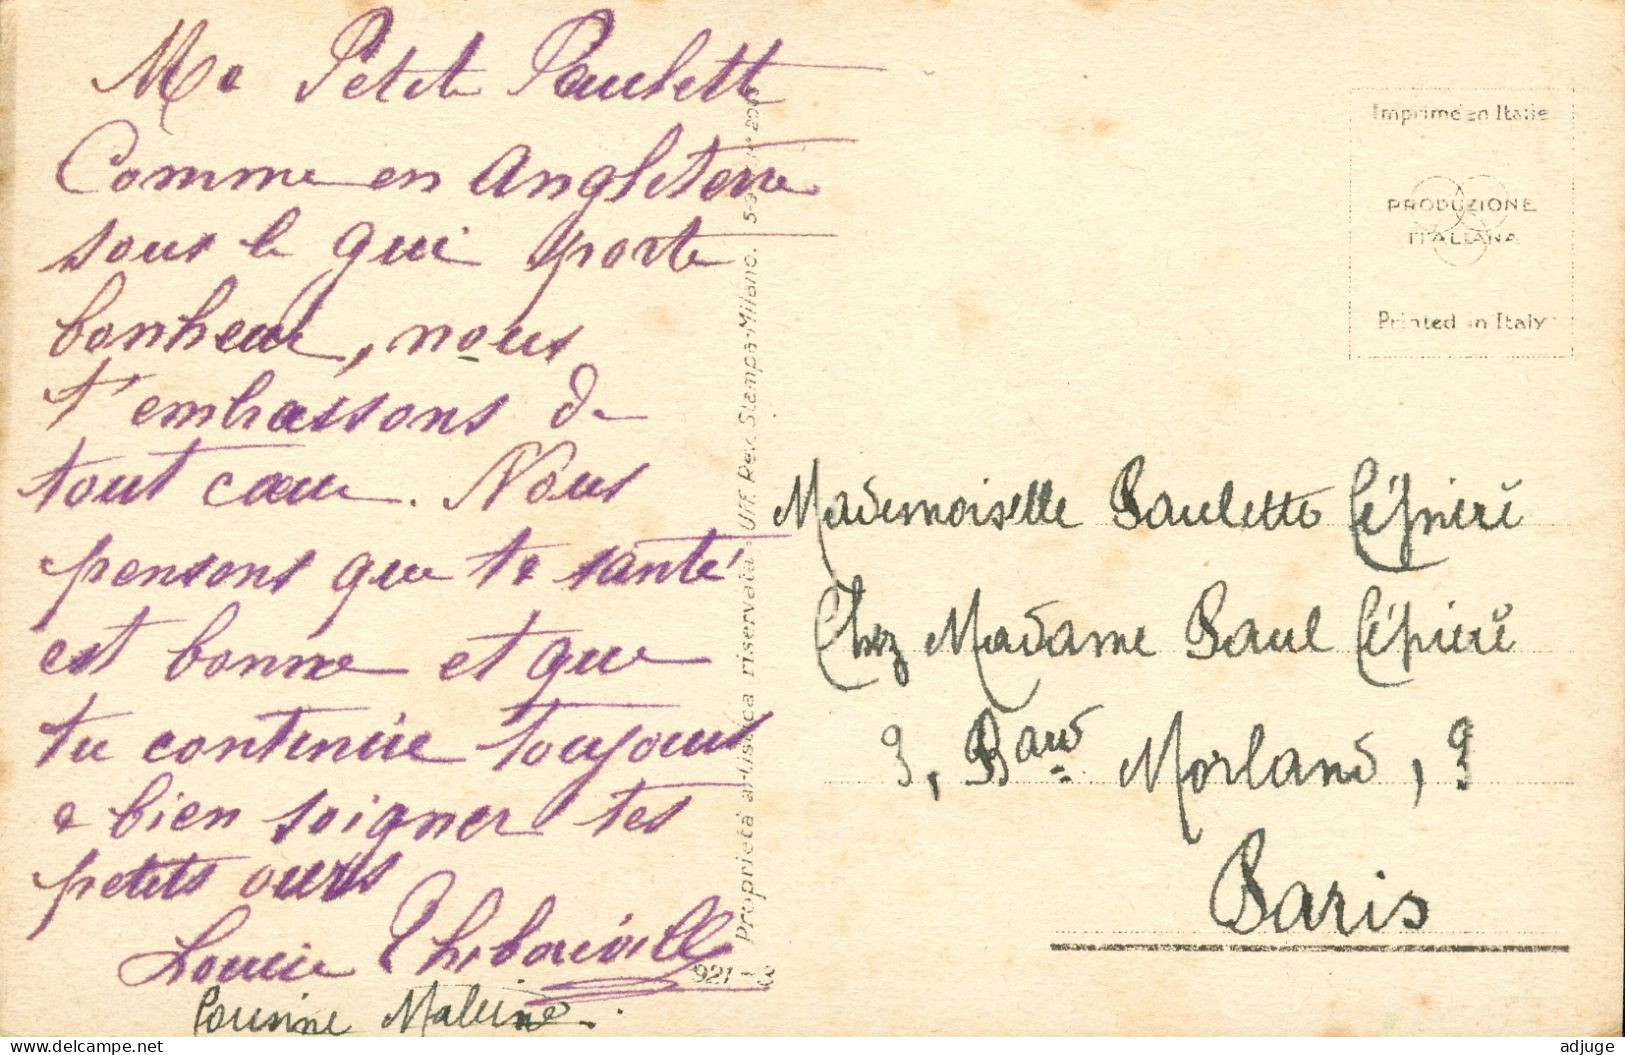 Ma Petite Paulette
Comme en Angleterre
sous le gui porte
bonheur, nous
t'embrassons de
tout cœur. Nous
pensons que ta santé
est bonne et que
tu continue toujours
a bien soigner tes
petits ours
Louise Thibouville
Cousine
Proprietà artistica riservata - Uff. Rev. Stampa-Milano.
921 - 3
Imprimé en Italie
PRODUZIONE
ITALIANA
Printed in Italy
Mademoiselle Paulette
Chez Madame Paul
9, Bard Morland, 9
Paris
adjuge
Delcampe.net